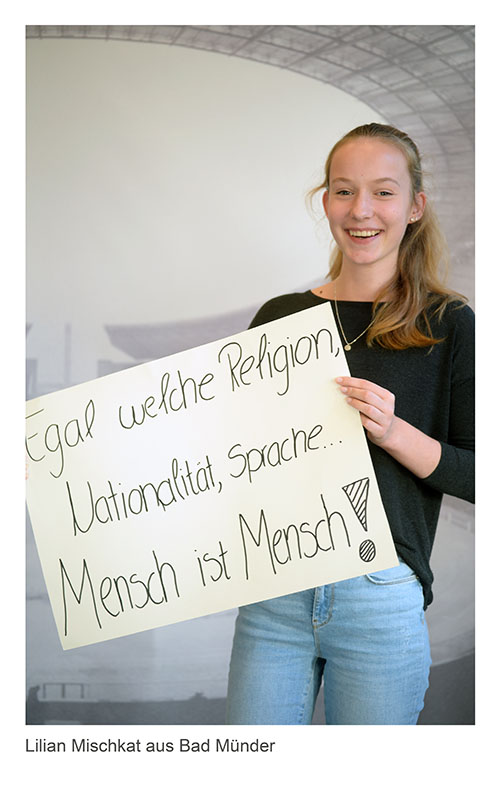 Egal welche Religion,
Nationalität, Sprache...
Mensch ist Mensch!
Lilian Mischkat aus Bad Münder